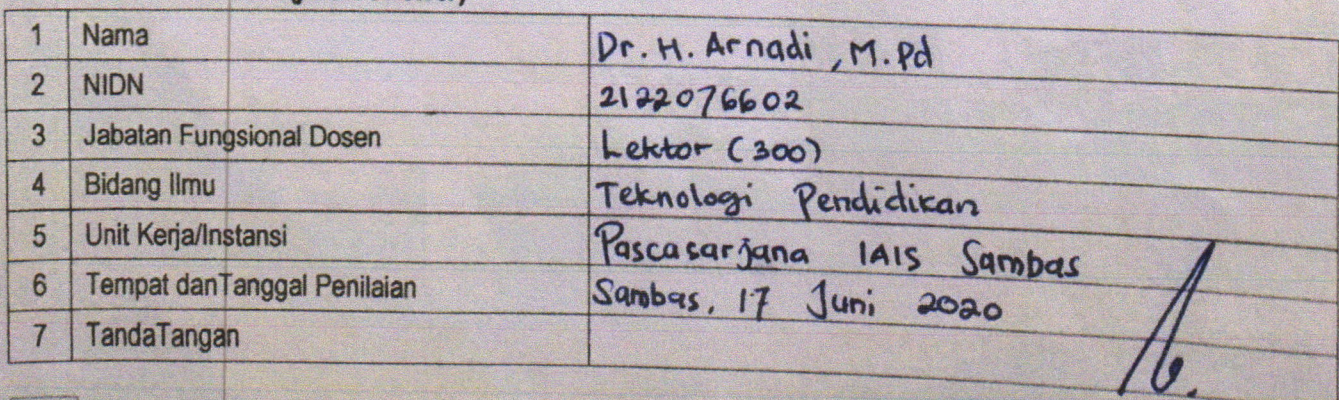 1 Nama Dr. H. Arnadi, M.Pd
2 NIDN 2122076602
3 Jabatan Fungsional Dosen Lektor (300)
4 Bidang Ilmu Teknologi Pendidikan
5 Unit Kerja/Instansi Pascasarjana IAIS Sambas
6 Tempat danTanggal Penilaian Sambas, 17 Juni 2020
7 TandaTangan